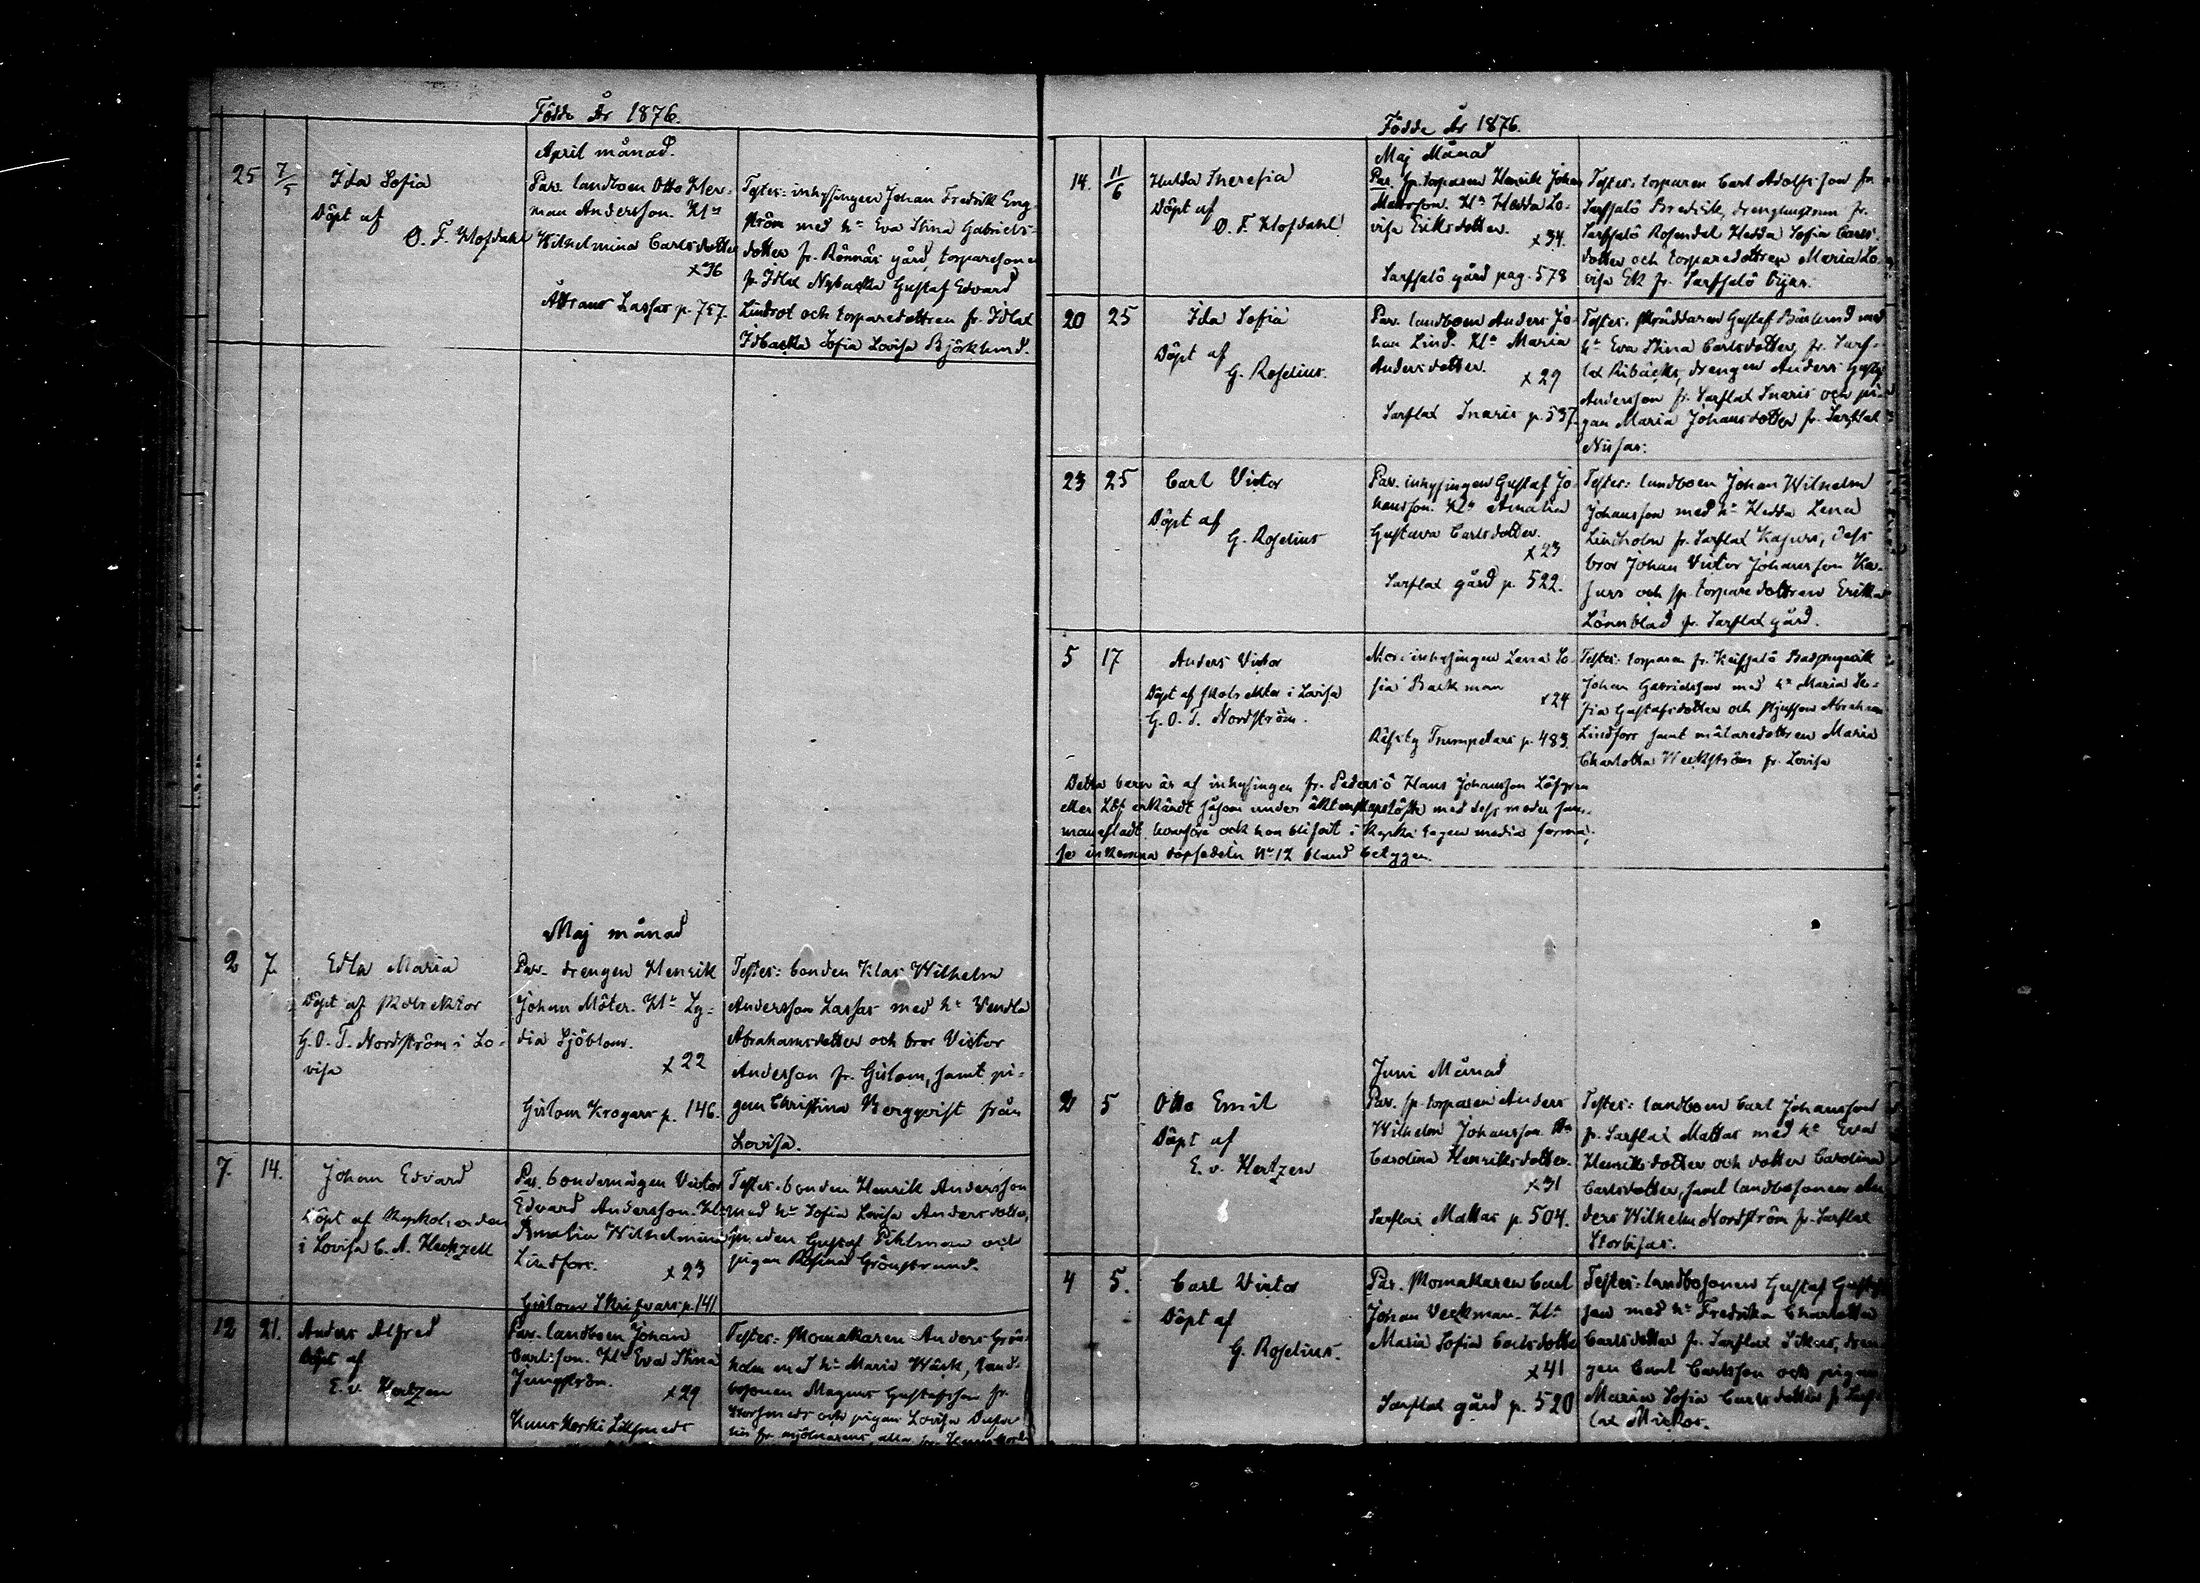 Födde År 1876.
April månad.
25 7/5 Ida Sofia
Döpt af
O. F. Hofdahl
Par. landboen Otto Her-
man Andersson. H:u
Wilhelmina Carlsdotter
x 36
Lassas p. 757.
Testes: inhysingen Johan Fredrik Eng-
ström med h:u Eva Stina Gabriels-
dotter fr. Rönnäs gård, torparesonen
fr. Idlax Nybacka Gustaf Edvard
Lindrot och torparedottren fr. Idlax
Idbacka Sofia Lovisa Björklund.
Maj månad
2 7. Edla Maria
Döpt af skolrektor
G. O. T. Nordström i Lo-
visa
Par. drengen Henrik
Johan Möter. H:u Ly-
dia Sjöblom.
x 22
Gislom Krogars p. 146.
Testes: bonden Klas Wilhelm
Andersson Lassas med h:u Vendla
Abrahamsdotter och bror Victor
Andersson fr. Gislom, samt pi-
gan Christina Bergqvist från
Lovisa.
7. 14. Johan Edvard
Döpt af
i Lovisa C. A. Heckzell
Par. bondemågen Victor
Edvard Andersson. H:u
Amalia Wilhelmina
Lindfors.
x 23
Gislom Skrifvars p. 141
Testes: bonden Henrik Andersson
med h:u Sofia Lovisa Andersdotter,
Smeden Gustaf Pihlman och
pigan Rosina Grönstrand.
12 21. Anders Alfred
Döpt af
E. v. Hertzen
Par. landboen Johan
Carlsson. H:u Eva Stina
Ljungström.
x 29
Lillsmeds
Testes: skomakaren Anders Grön-
holm med h:u Maria Wäck, land-
bosonen Magnus Gustafsson fr.
Storsmeds och pigan Lovisa
Födde År 1876.
Maj Månad
14. 11/6 Hulda Theresia
Döpt af
O. F. Hofdahl
Par. sp. torparen Henrik Johan
Matsson. H:u Hedda Lo-
visa Eriksdotter.
x 34.
Sarfsalö gård pag. 578
Testes: torparen Carl Adolfsson fr.
Sarfsalö Bredvik, drenghustrun fr.
Sarfsalö Rosendal Hedda Sofia Carls-
dotter och torparedottren Maria Lo-
visa Ek fr. Sarfsalö byar.
20 25 Ida Sofia
Döpt af
G. Roselius.
Par. landboen Anders Jo-
han Lind. H:u Maria
Andersdotter.
x 29
Sarflax Snaris p. 537.
Testes: skräddaren Gustaf Bärlund med
h:u Eva Stina Carlsdotter fr. Sarf-
lax Ribacka, drengen Anders Gust.
Andersson fr. Sarflax Snaris och pi-
gan Maria Johansdotter fr. Sarflax
Nissas.
23 25 Carl Victor
Döpt af
G. Roselius
Par. inhysingen Gustaf Jo-
hansson. H:u Amalia
Gustava Carlsdotter.
x 23
Sarflax gård p. 522.
Testes: landboen Johan Wilhelm
Johansson med h:u Hedda Lena
Lindholm fr. Sarflax Kasurs, dess
bror Johan Victor Johansson Ka-
surs och sp. torparedottren Erika
Lönnblad fr. Sarflax gård.
5 17 Anders Victor
Döpt af skolrektor i Lovisa
G. O. T. Nordström.
Mor: inhysingen Lena So-
fia Backman
x 24
Räfsby Trumpetars p. 483.
Testes: torparen fr. Keipsalö
Johan Gabrielsson med h:u Maria So-
fia Gustafsdotter och skjutson Abraham
Lindfors samt målaredottren Maria
Charlotta Weckström fr. Lovisa
Detta barn är af inhysingen fr. Pedersö Hans Johansson Löfgren
eller Löf erkändt såsom under äktenskapslöfte med dess moder sam-
manafladt, hvarföre ock hon blifvit i kyrka tagen media forma,
se inkomna dopsedeln N:o 12 bland betygen.
Juni Månad
2 5 Otto Emil
Döpt af
E. v. Hertzen
Par. sp. torparen Anders
Wilhelm Johansson H:u
Carolina Henriksdotter.
x 31
Sarflax Mattas p. 504.
Testes: landboen Carl Johansson
fr. Sarflax Mattas med h:u Eva
Henriksdotter och dotter Carolina
Carlsdotter, samt landbosonen An-
ders Wilhelm Nordström fr. Sarflax
Storbisas.
4 5. Carl Victor
Döpt af
G. Roselius.
Par. skomakaren Carl
Johan Veckman. H:u
Maria Sofia Carlsdotter
x 41
Sarflax gård p. 520
Testes: landbosonen Gustaf Gustafs-
son med h:u Fredrika Charlotta
Carlsdotter fr. Sarflax Sikas, dren-
gen Carl Carlsson och pigan
Maria Sofia Carlsdotter fr. Sarf-
lax Mickos.